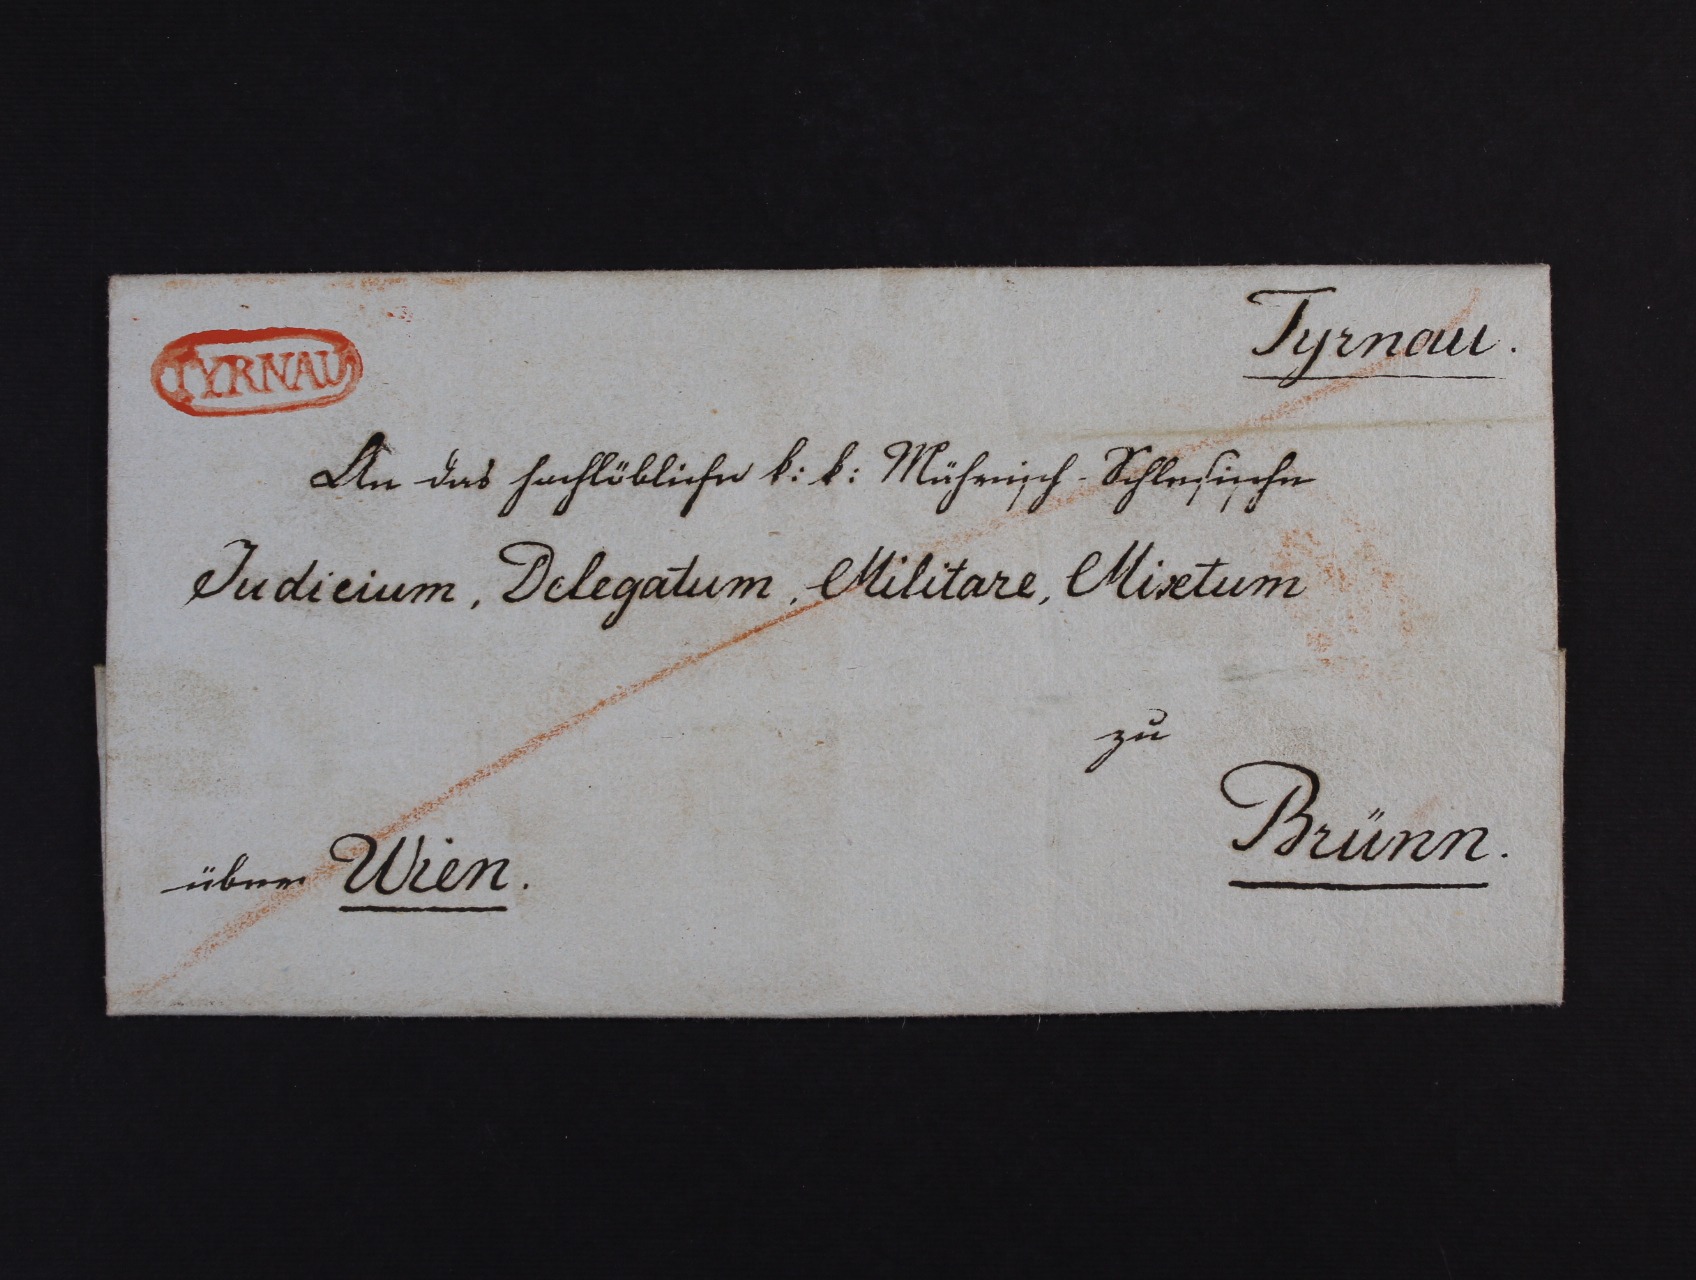 TYRNAU
Tyrnau.
An das hochlöbliche k: k: Mährisch-Schlesische
Judicium, Delegatum, Militare, Mixtum
zu
Brünn.
über Wien.